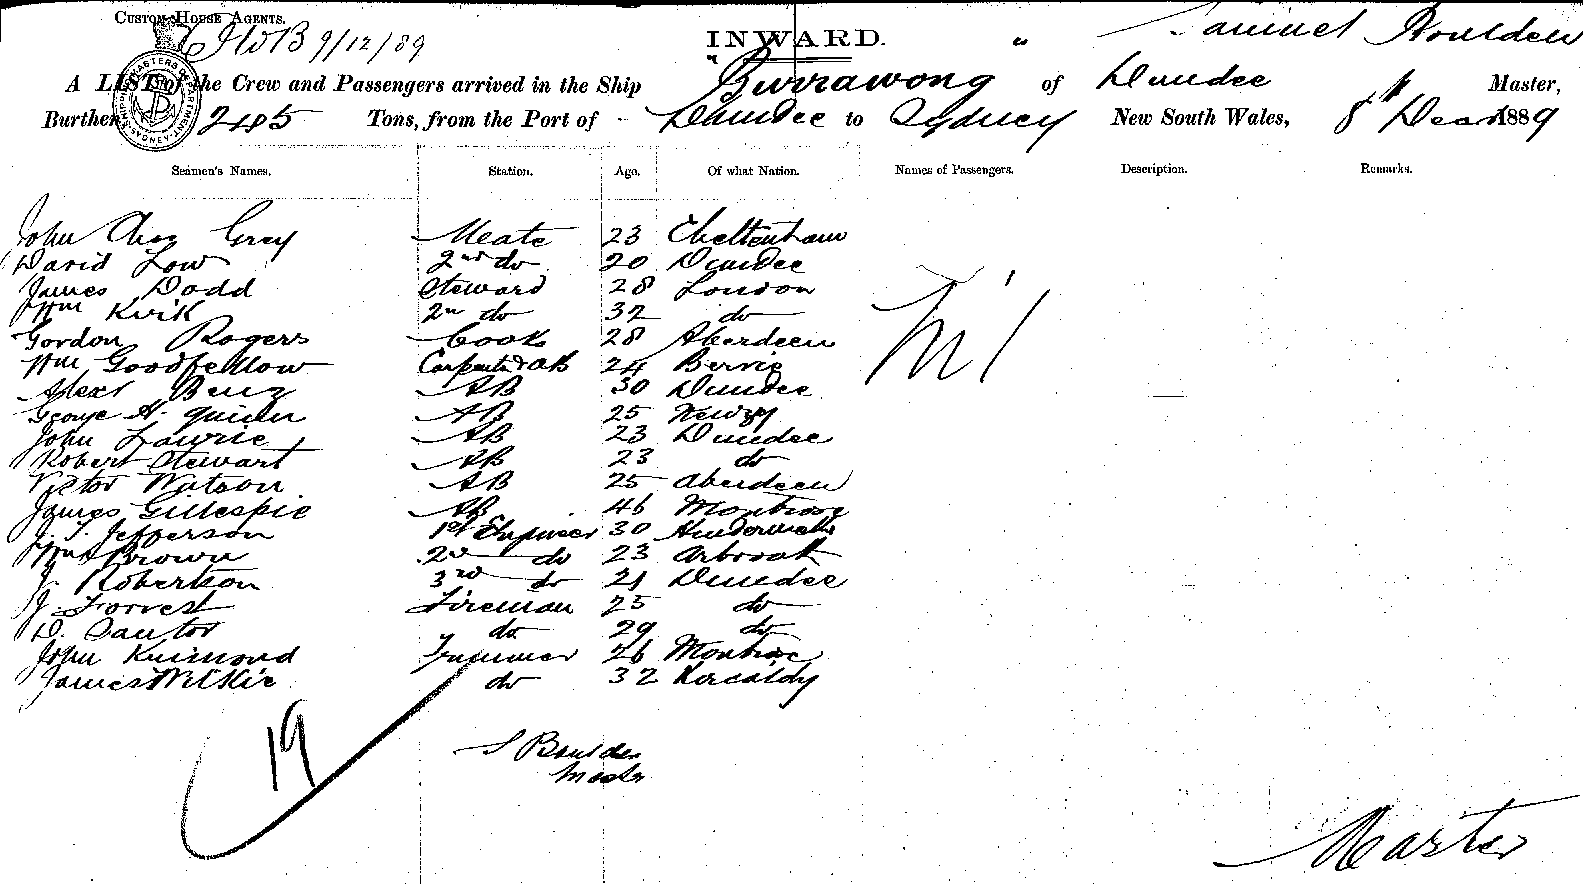 CUSTOM HOUSE AGENTS.
9/12/89
INWARD.
" Samuel Boulden
A LIST of the Crew and Passengers arrived in the Ship "Burrawong of Dundee Master,
Burthen 245 Tons, from the Port of Dundee to Sydney New South Wales, 8th Decr 1889
Seamen's Names. Station. Age. Of what Nation. Names of Passengers. Description. Remarks.
John Chas Grey Meate 23 Cheltenham
David Low 2nd do 20 Dundee
James Dodd Steward 28 London
Wm Kirk 2n do 32 do
Gordon Rogers Cook 28 Aberdeen
Wm Goodfellow Carpenter & AB 24 Bervie
Alexr AB 30 Dundee
George H. AB 25
John Lawrie AB 23 Dundee
Robert Stewart AB 23 do
Victor Watson AB 25 Aberdeen
James Gillespie AB 46 Montrose
J. T. Jefferson 1st Engineer 30
Wm Brown 2nd do 23
J. Robertson 3rd do 21 Dundee
J. Forrest Fireman 25 do
D. do 29 do
John Trimmer 26 Montrose
James Wilkie do 32 Kircaldy
Nil
19
S Boulden
Master
Master